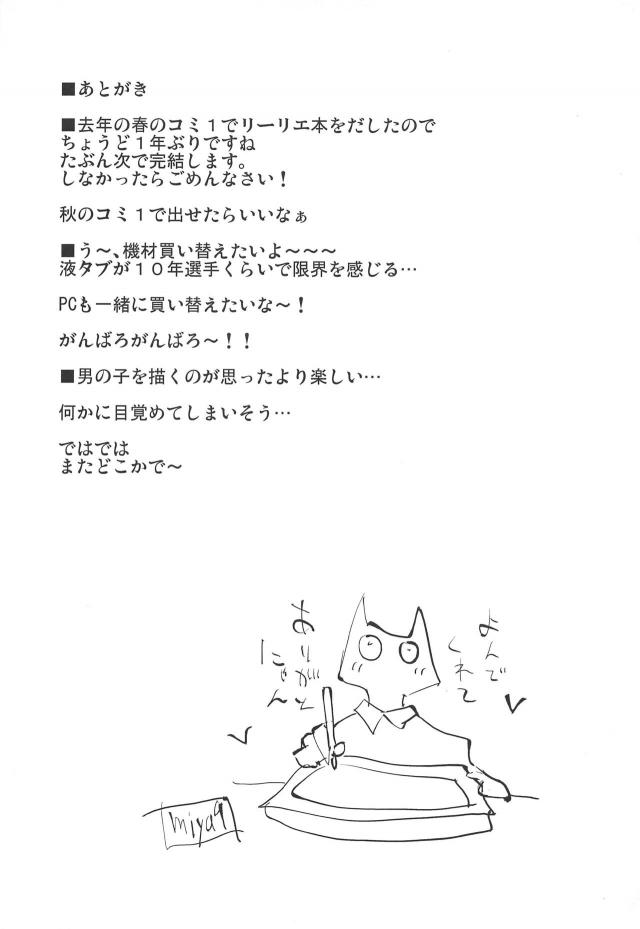 ■あとがき
■去年の春のコミ１でリーリエ本をだしたので
ちょうど１年ぶりですね
たぶん次で完結します。
しなかったらごめんなさい！
秋のコミ１で出せたらいいなぁ
■う～、機材買い替えたいよ～～～
液タブが１０年選手くらいで限界を感じる…
PCも一緒に買い替えたいな～！
がんばろがんばろ～！！
■男の子を描くのが思ったより楽しい…
何かに目覚めてしまいそう…
ではでは
またどこかで～
よんで
くれて
ありがと
にゃん
miya9